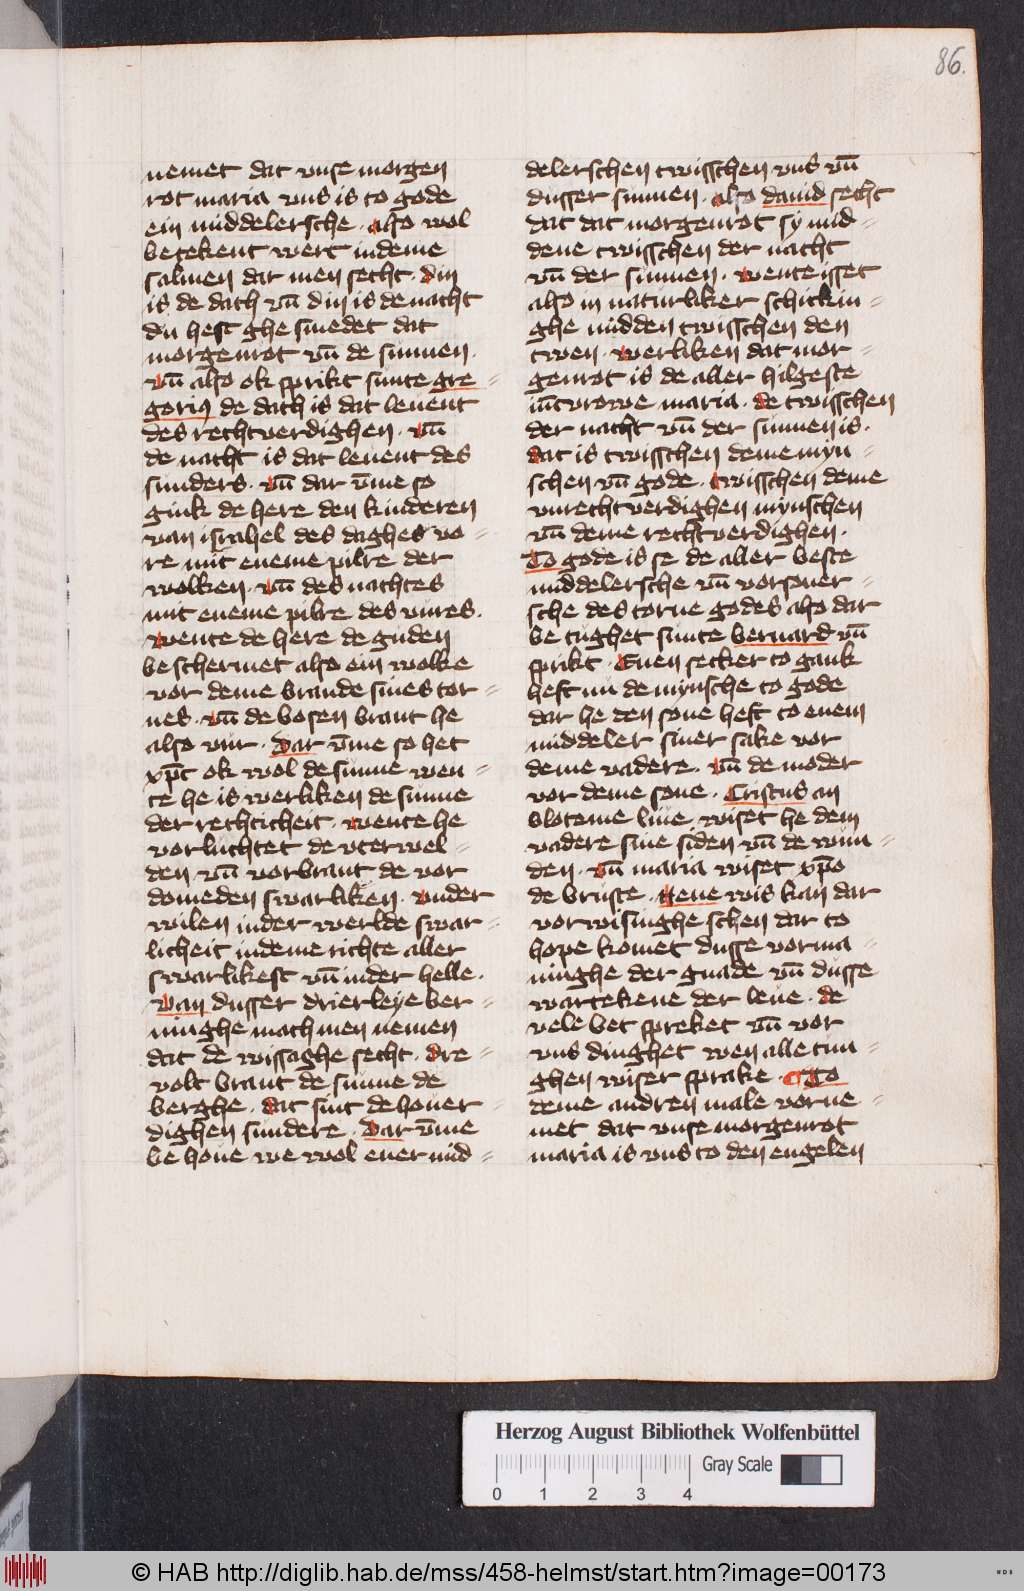 86.
nemet dat vnse morgen
rot maria vns is to gode
ein middelersche. also wol
betekent wert indeme
salmen dar men secht. din
is de dach vn̄ din is de nacht
du hest ghe smedet dat
morgenrot vn̄ de sunnen.
vn̄ also ok sprikt sunte gre=
gorius de dach is dat leuent
des rechtverdighen. vn̄
de nacht is dat leuent des
sunders. vn̄ dar v̄me so
gink de here den kinderen
van israhel des daghes vo=
re mit eneme pilre der
wolken. vn̄ des nachtes
mit eneme pilre des vures.
wente de here de guden
beschermet also ein wolke
vor deme brande sines tor=
nes. vn̄ de bosen brant he
also vur. Dar v̄me so het
xp̄c ok wol de sunne wen=
te he is werliken de sunne
der rechticheit. wente he
vorluchtet de vterwel=
den. vn̄ vorbrant de vor
domeden swarliken. vnder
wilen inder werlde swar=
licheit indeme richte aller
swarlikest vn̄ inder helle.
Van dusser drierleye ber=
ninghe mach men nemen
dat de wissaghe secht. dre=
volt brant de sunne de
berghe. dat sint de houer=
dighen sundere. Dar v̄me
be houe we wol ener mid=
delerschen twisschen vns vn̄
dusser sunnen. also dauid secht
dat dat morgenrot sy mid=
dene twisschen der nacht
vn̄ der sunnen. wente isset
also in naturliker schickin=
ghe midden twisschen den
twen. werliken dat mor=
genrot is de aller hilgeste
iūcvrowe maria. de twisschen
der nacht vn̄ der sunnen is.
dat is twisschen deme myn=
schen vn̄ gode. twisschen deme
vnrechtverdighen mynschen
vn̄ deme rechtverdighen.
To gode is se de aller beste
middelersche vn̄ vorsoner=
sche des torne godes also dar
be tughet sunte bernard vn̄
sprikt. Enen secker to gank
heft nu de mynsche to gode
dar he den sone heft to enem
middeler siner sake vor
deme vadere. vn̄ de moder
vor deme sone. Cristus an
bloteme liue wiset he dem
vadere sine siden vn̄ de wun=
den. vn̄ maria wiset xp̄o
de bruste. Nene wis kan dar
vorwisinghe schen dar to
hope komet dusse vorma=
ninghe der gnade vn̄ dusse
wartekene der leue. de
vele bet spreket vn̄ vor
vns dinghet wen alle tun=
ghen wiser sprake. ¶ To
deme andren male vorne=
met dat vnse morgenrot
maria is vns to den engelen
Herzog August Bibliothek Wolfenbüttel
Gray Scale
0 1 2 3 4
© HAB http://diglib.hab.de/mss/458-helmst/start.htm?image=00173